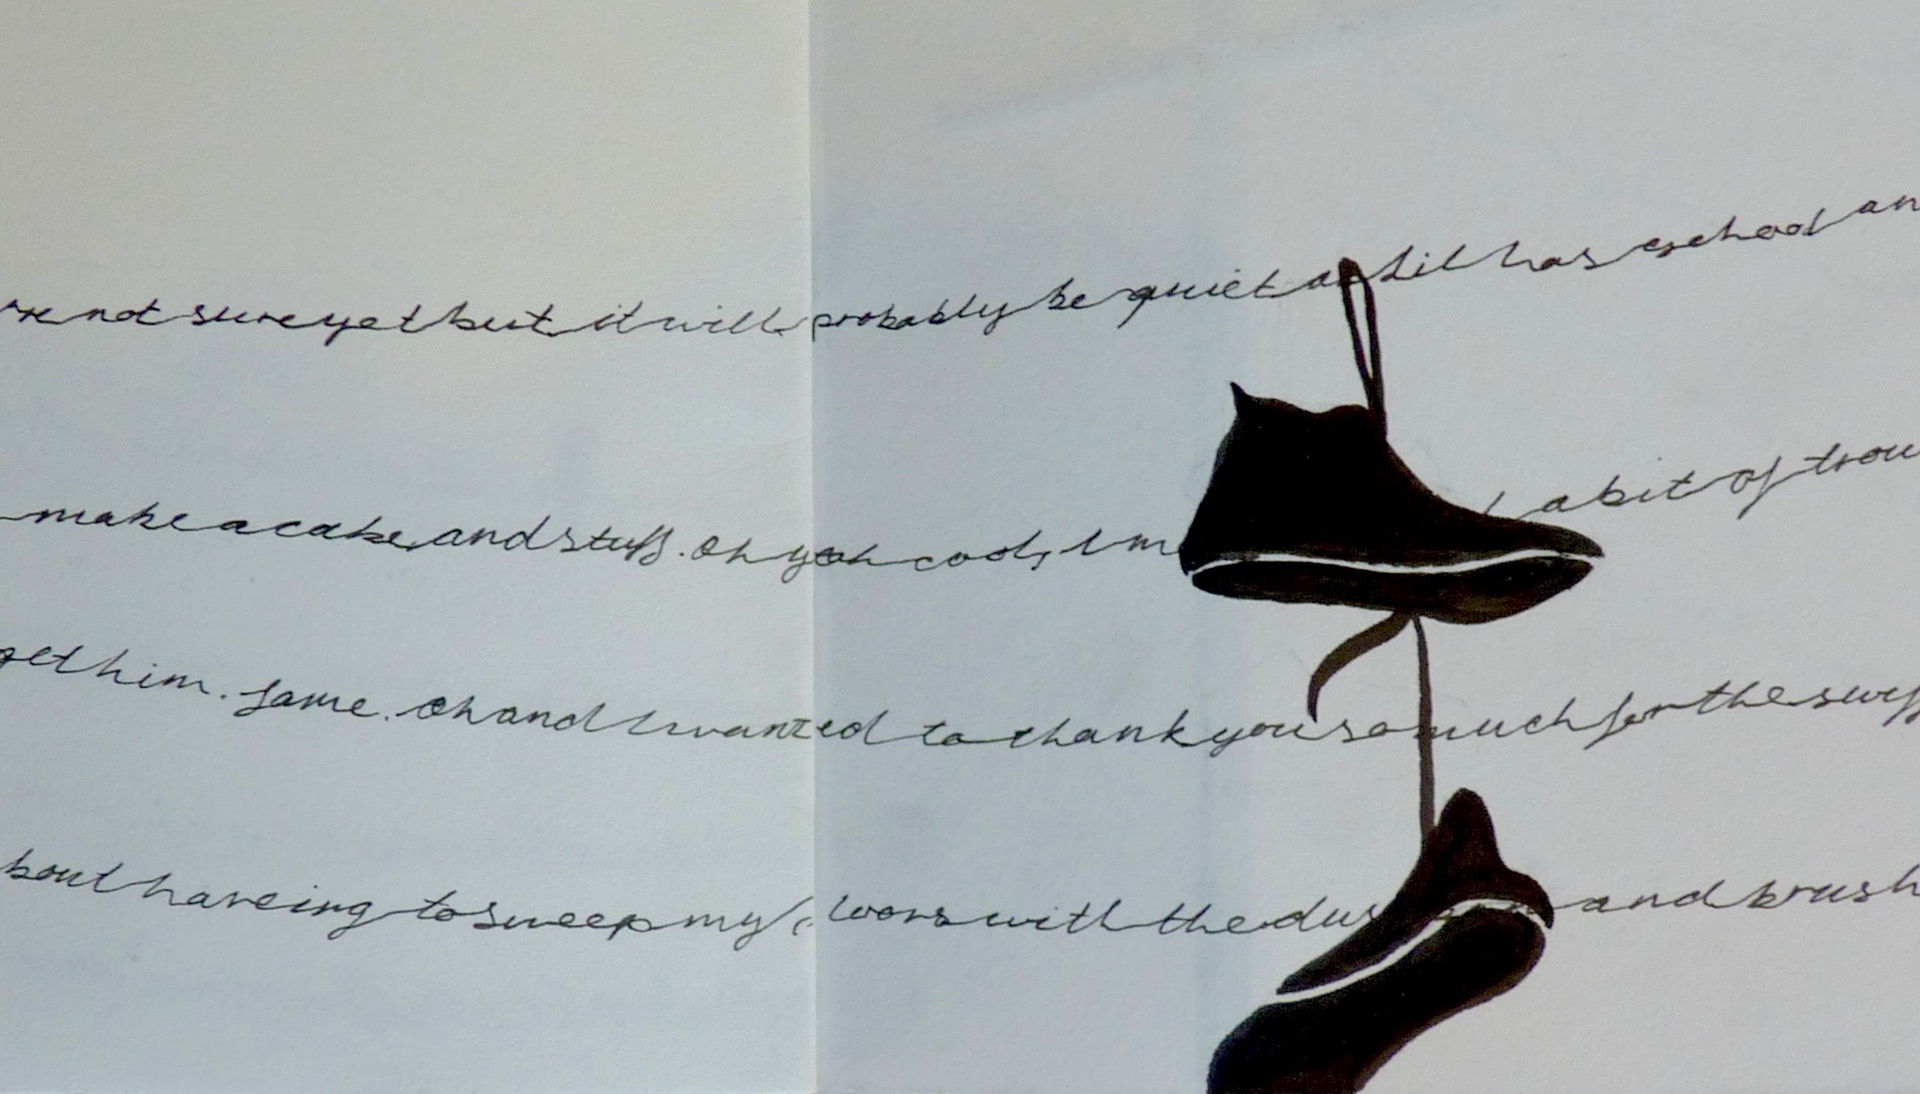 're not sure yet but it will probably be quiet as lil has school an
make a cake and stuff. Oh yeah cool, I'm a bit of trou
get him. Same. Oh and I wanted to thank you so much for the
bout haveing to sweep my with the and brush